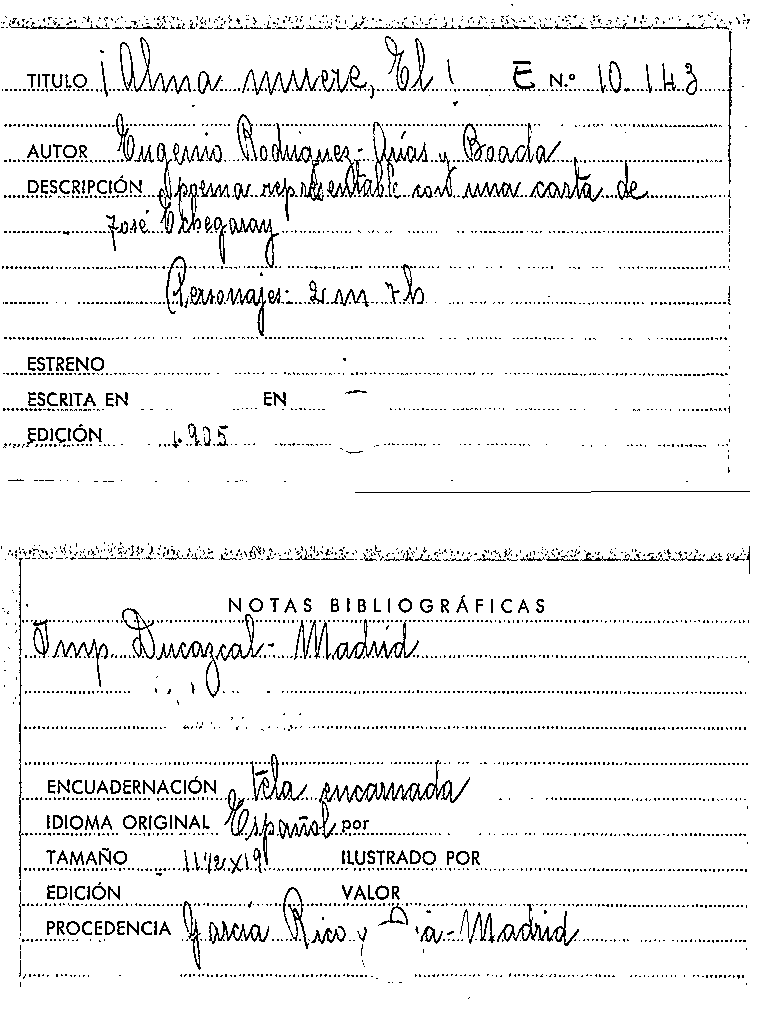 TITULO ¡Alma muere, El! E N.º 10.143
AUTOR Eugenio Rodriguez-Arías y Boada
DESCRIPCIÓN 1 poema representable con una carta de
José Echegaray
Personajes- 2 m 7 h
ESTRENO
ESCRITA EN EN —
EDICIÓN 1.905
NOTAS BIBLIOGRÁFICAS
Imp. Ducazcal- Madrid
ENCUADERNACIÓN tela encarnada
IDIOMA ORIGINAL Español por
TAMAÑO 11 1/2 x 19 ILUSTRADO POR
EDICIÓN VALOR
PROCEDENCIA García Rico y - Madrid